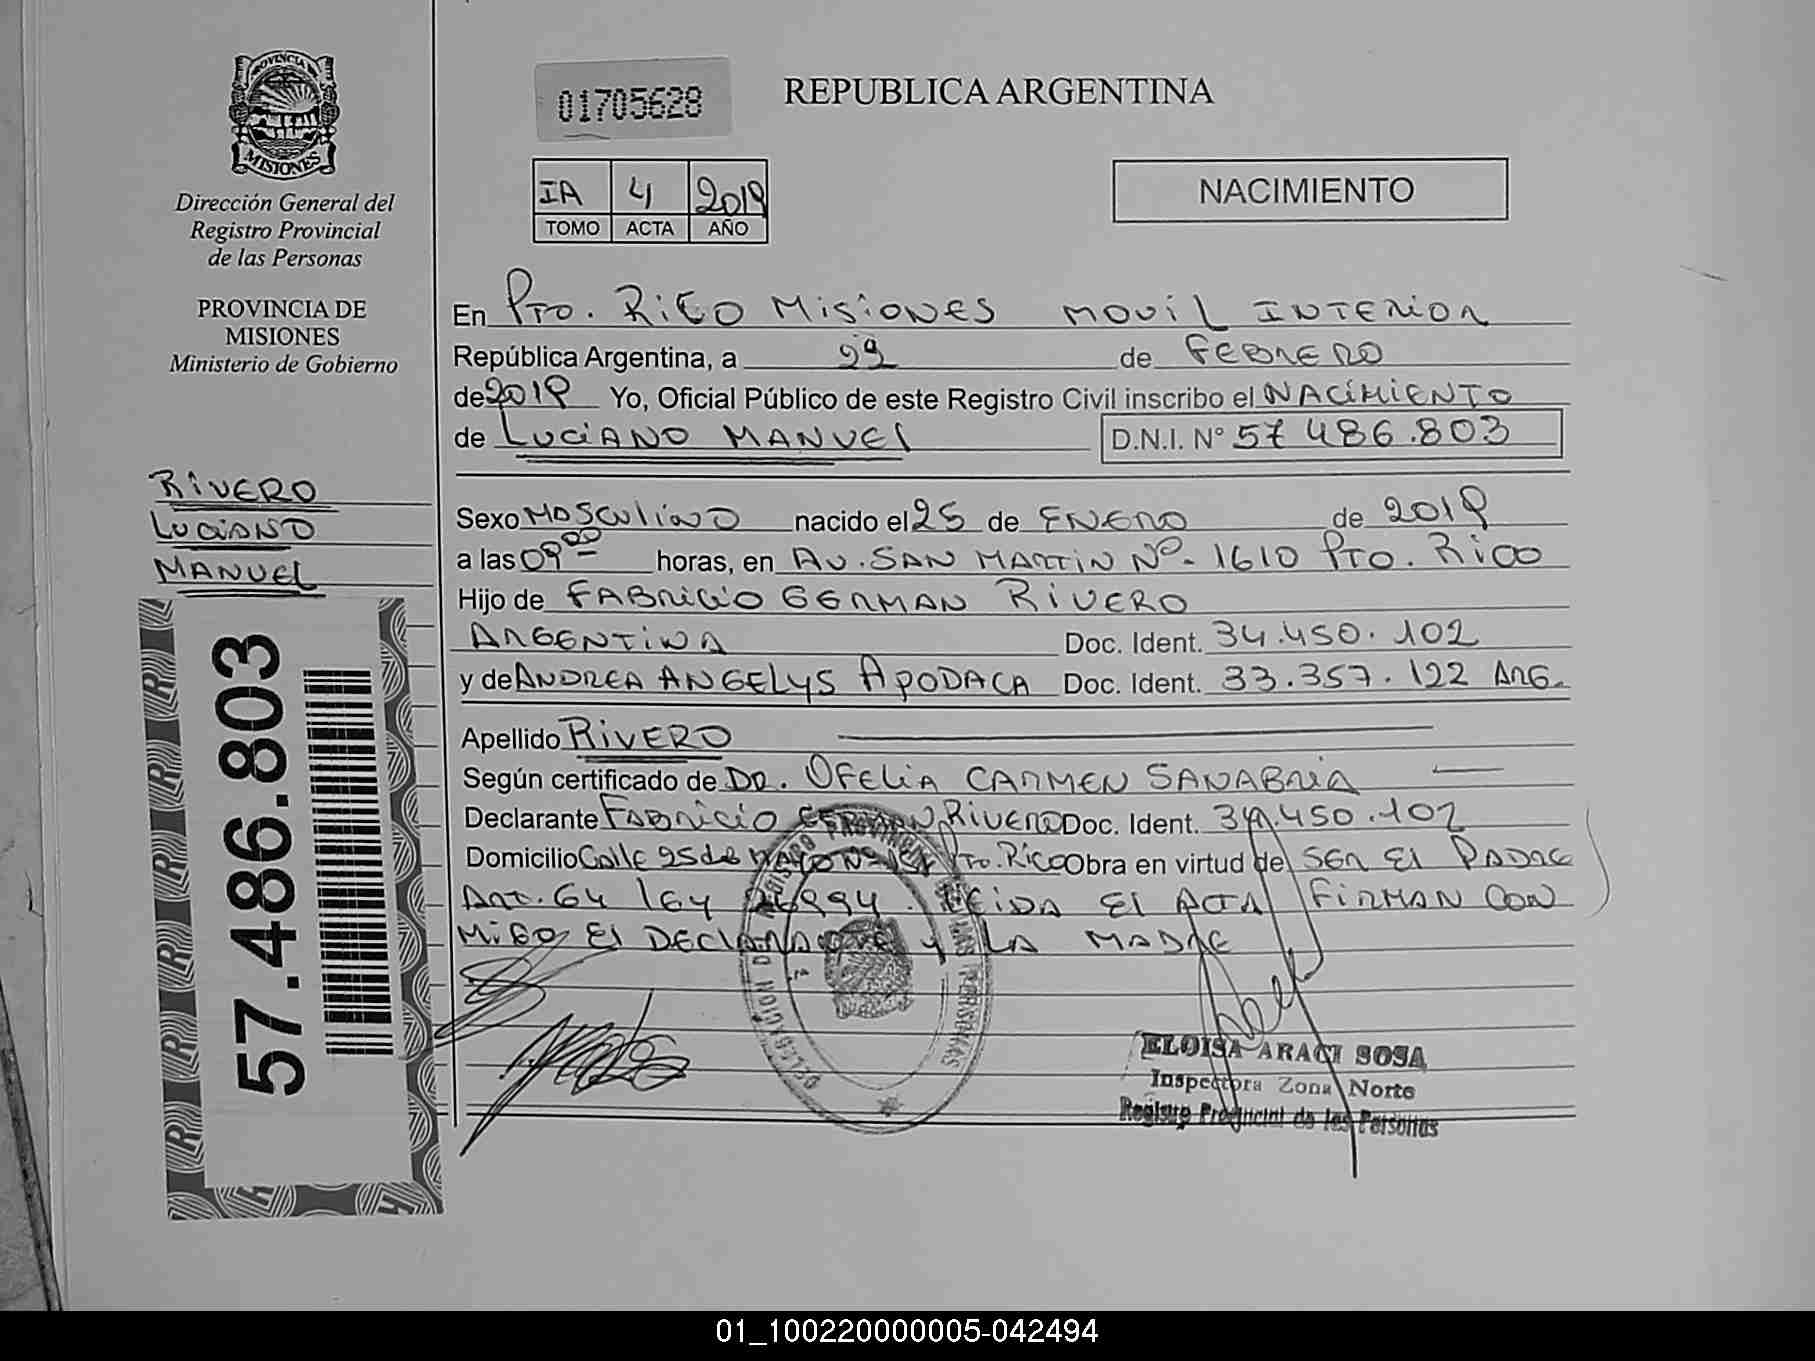 PROVINCIA
MISIONES
Dirección General del
Registro Provincial
de las Personas
PROVINCIA DE
MISIONES
Ministerio de Gobierno
RIVERO
LUCIANO
MANUEL
57.486.803
01705628
REPUBLICA ARGENTINA
IA 4 2019
TOMO ACTA AÑO
NACIMIENTO
En Pto. Rico Misiones Movil Interior
República Argentina, a de Febrero
de 2019 Yo, Oficial Público de este Registro Civil inscribo el Nacimiento
de Luciano Manuel D.N.I. N° 57 486.803
Sexo Masculino nacido el 25 de Enero de 2019
a las 09 00 horas, en Av. San Martin Nº 1610 Pto. Rico
Hijo de Fabricio German Rivero
Argentina Doc. Ident. 34.450.102
y de Andrea Angelys Apodaca Doc. Ident. 33.357.122 Arg.
Apellido Rivero
Según certificado de Dr. Ofelia Carmen Sanabria
Declarante Fabricio German Rivero Doc. Ident. 34.450.102
Domicilio Calle 25 de Mayo Nº Pto. Rico Obra en virtud de Ser el Padre
Art. 64 Ley 26994. Leida el Acta Firman Con
Migo el Declarante y La Madre
ELOISA ARACI SOSA
Inspectora Zona Norte
Registro Provincial de las Personas
01_100220000005-042494